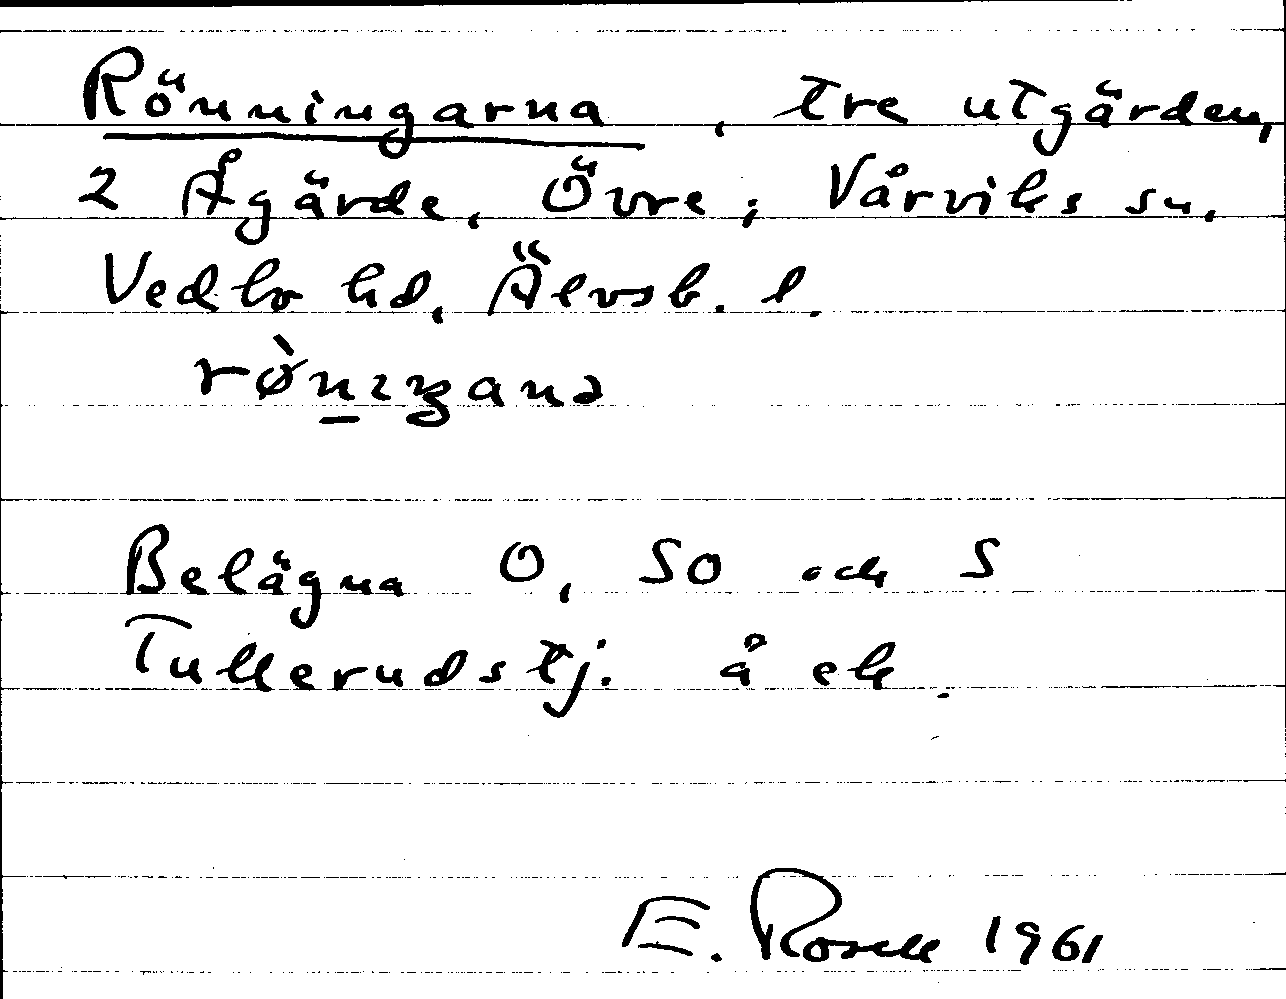 Rönningarna, tre utgärden,
2 Ågärde, Övre; Vårviks sn.
Vedbo hd, Älvsb. l.
rø̀n̲ıŋana
Belägna O, SO och S
Tullerudstj. å ek.
E. Rosell 1961